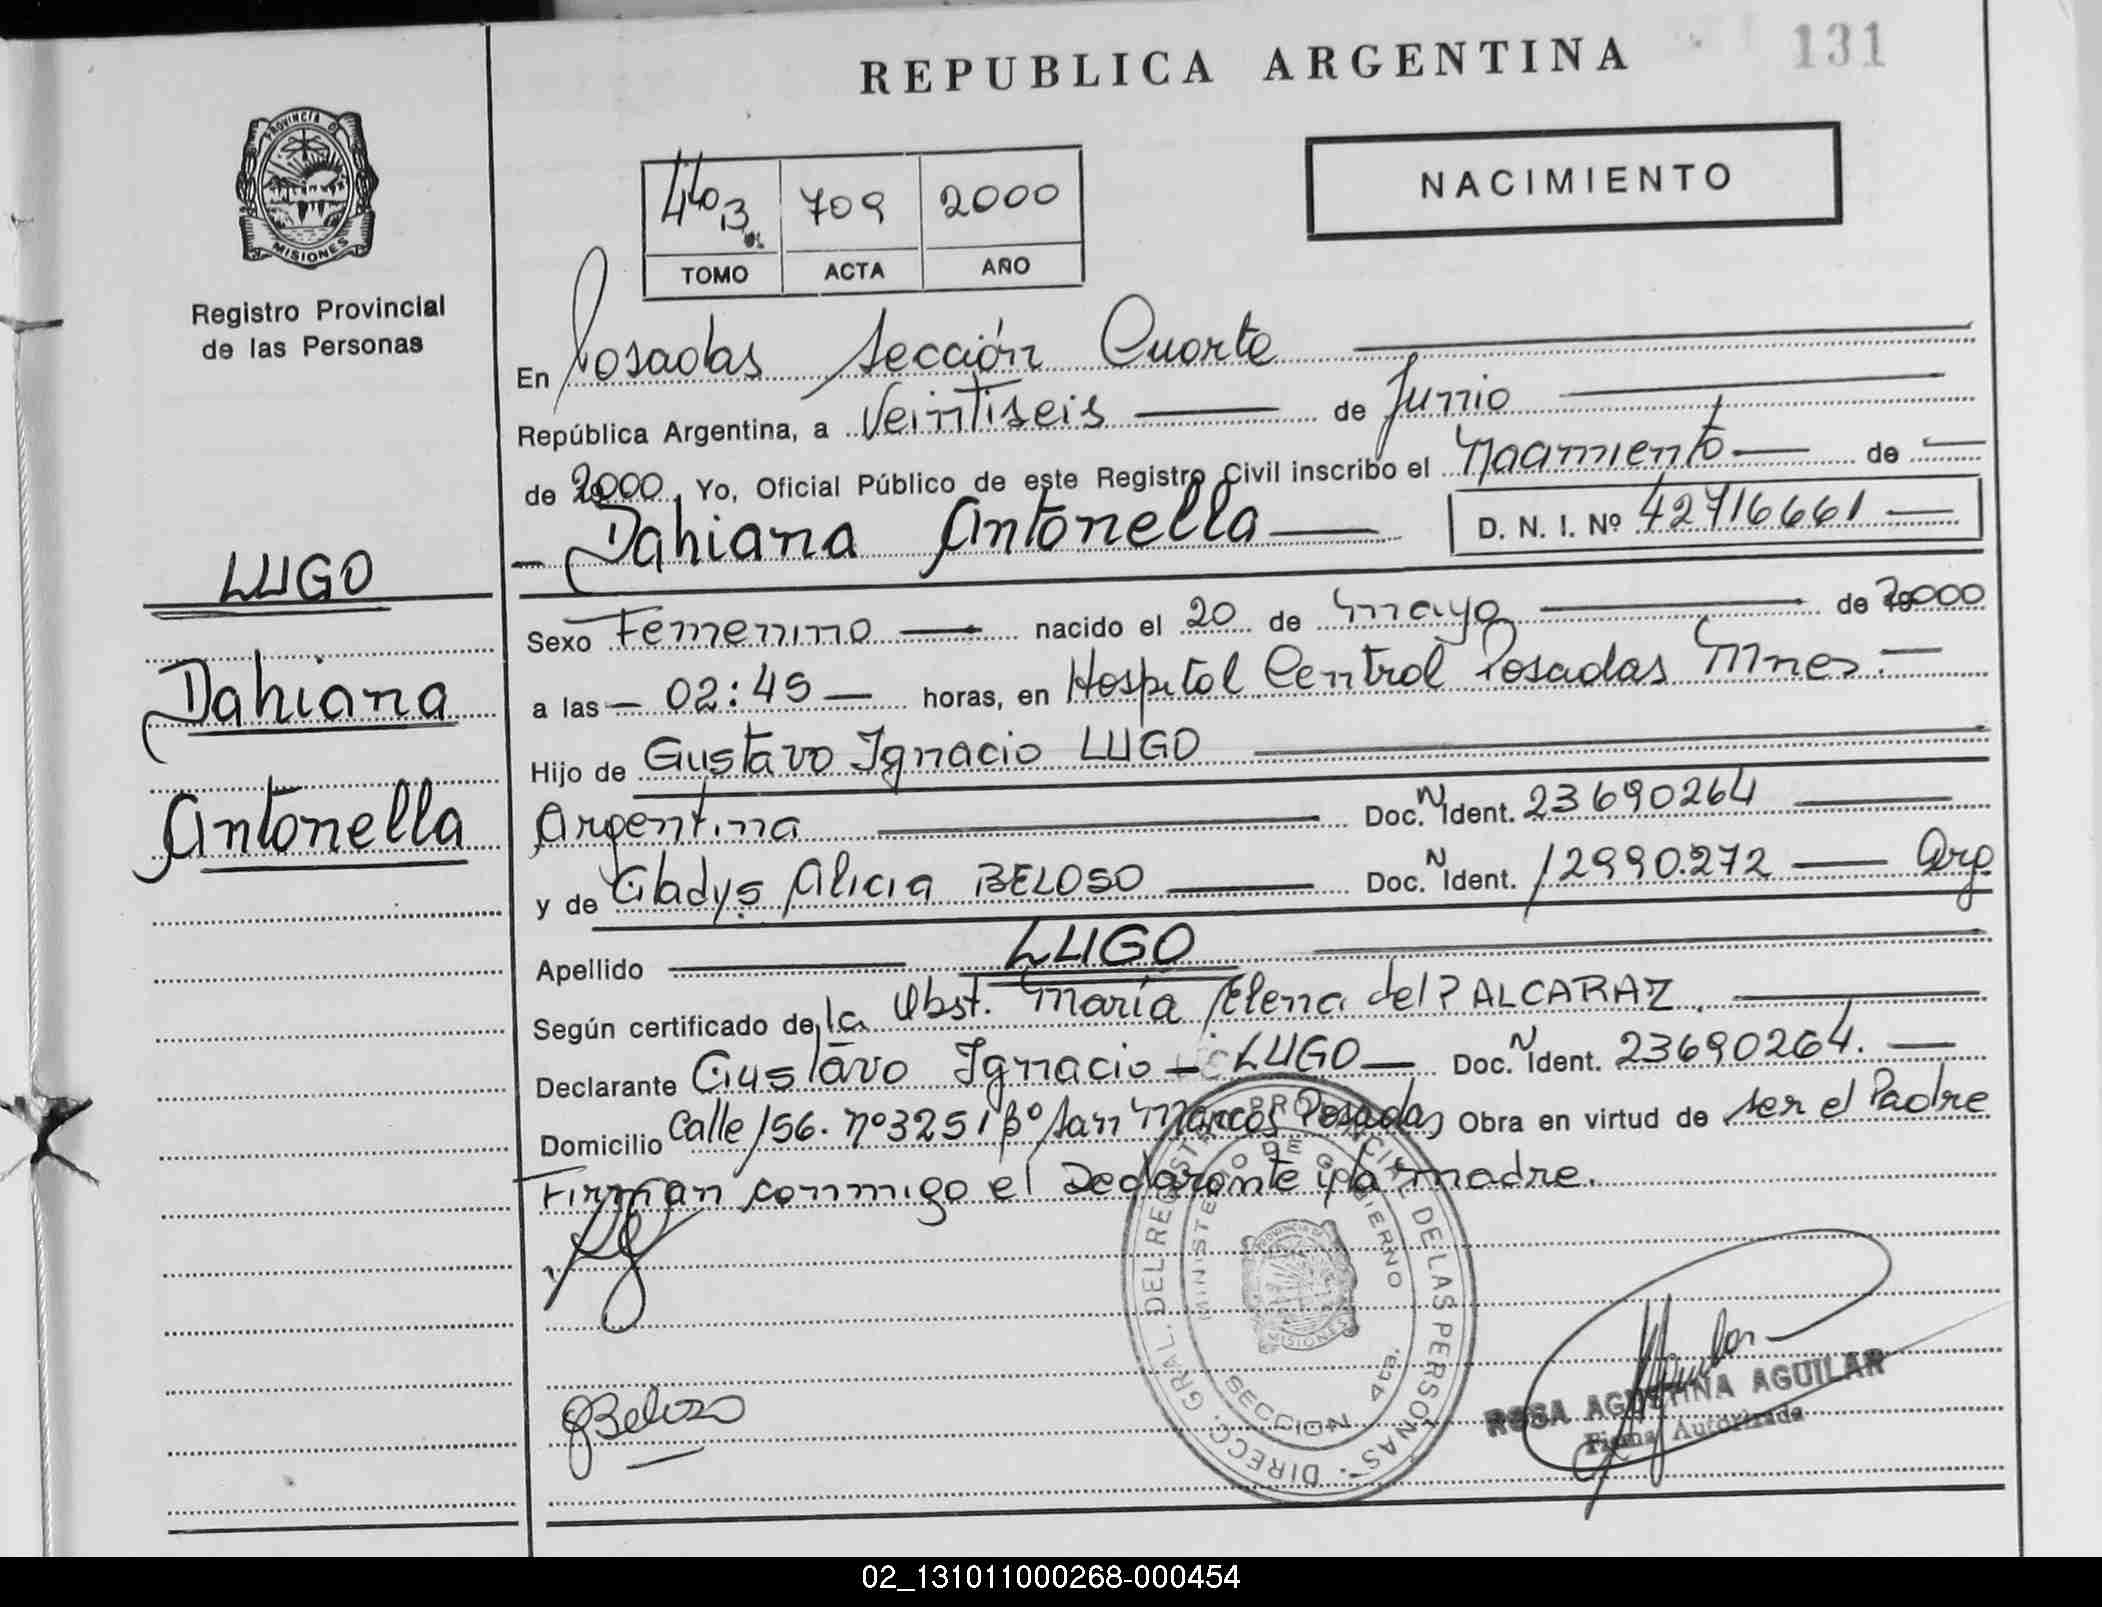 REPUBLICA ARGENTINA
131
PROVINCIA D
MISIONES
Registro Provincial
de las Personas
NACIMIENTO
709 2000
TOMO ACTA AÑO
En Posadas Sección Cuarta
República Argentina, a Veintiseis de Junio
de 2000. Yo, Oficial Público de este Registro Civil inscribo el Nacimiento de
Dahiana Antonella D. N. I. Nº 42716661
LUGO
Dahiana
Antonella
Sexo Femenino nacido el 20 de mayo de 2000
a las 02:45 horas, en Hospital Central Posadas Mnes.
Hijo de Gustavo Ignacio LUGO
Argentina Doc. N Ident. 23690264
y de Gladys Alicia BELOSO Doc. N Ident. 12990.272 Arg
Apellido LUGO
Según certificado de la Obst. María Elena del P ALCARAZ.
Declarante Gustavo Ignacio LUGO Doc. N Ident. 23690264.
Domicilio Calle 156. nº 3251 Bº San Marcos Posadas Obra en virtud de ser el Padre
Firman conmigo el Declarante y la madre.
DIRECC. GRAL. DEL REGISTRO PROVINCIAL DE LAS PERSONAS
MINISTERIO DE GOBIERNO
MISIONES
SECCION 4ta.
GBeloso
ROSA AGUSTINA AGUILAR
Firma Autorizada
02_131011000268-000454